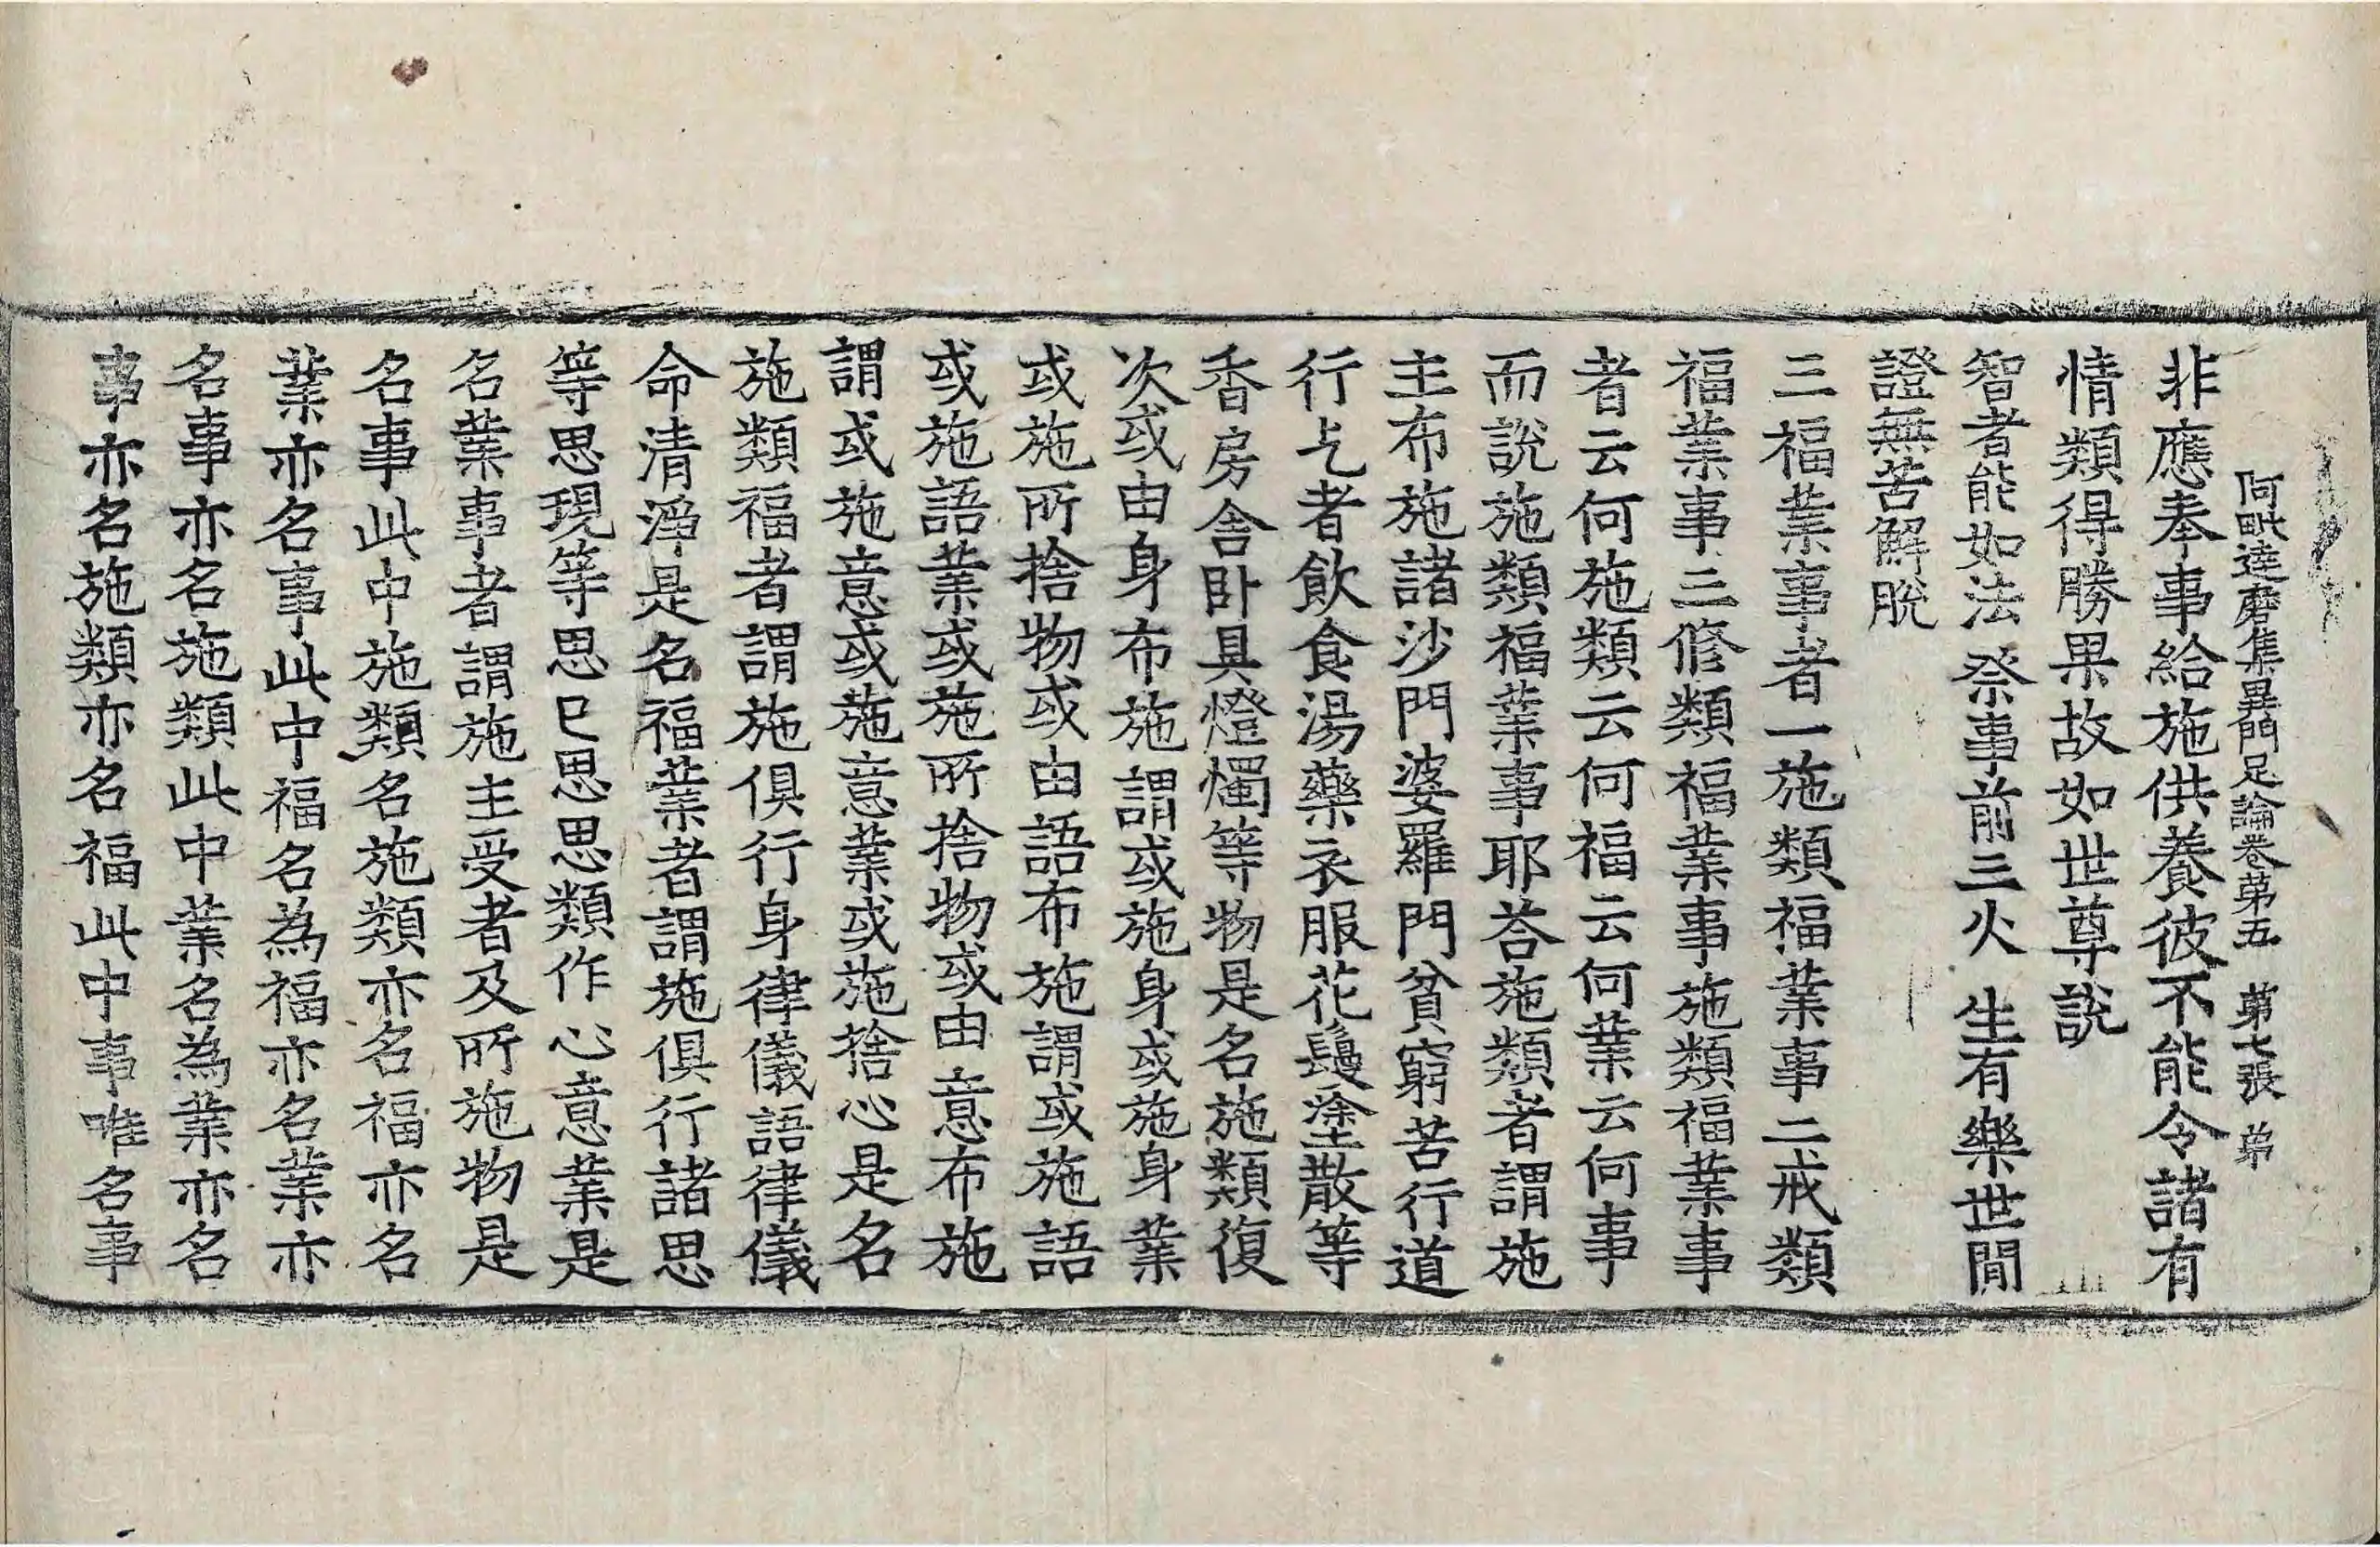 阿毗達磨集異門足論卷苐五 苐七張 苐
非應奉事給施供養彼不能令諸有
情類得勝果故如世尊說
智者能如法 祭事前三火 生有樂世間
證無苦解脫
三福業事者一施類福業事二戒類
福業事三修類福業事施類福業事
者云何施類云何福云何業云何事
而說施類福業事耶荅施類者謂施
主布施諸沙門婆羅門貧窮苦行道
行乞者飲食湯藥衣服花鬘塗散等
香房舍卧具燈燭等物是名施類復
次或由身布施謂或施身或施身業
或施所捨物或由語布施謂或施語
或施語業或施所捨物或由意布施
謂或施意或施意業或施捨心是名
施類福者謂施俱行身律儀語律儀
命清淨是名福業者謂施俱行諸思
等思現等思已思思類作心意業是
名業事者謂施主受者及所施物是
名事此中施類名施類亦名福亦名
業亦名事此中福名為福亦名業亦
名事亦名施類此中業名為業亦名
事亦名施類亦名福此中事唯名事